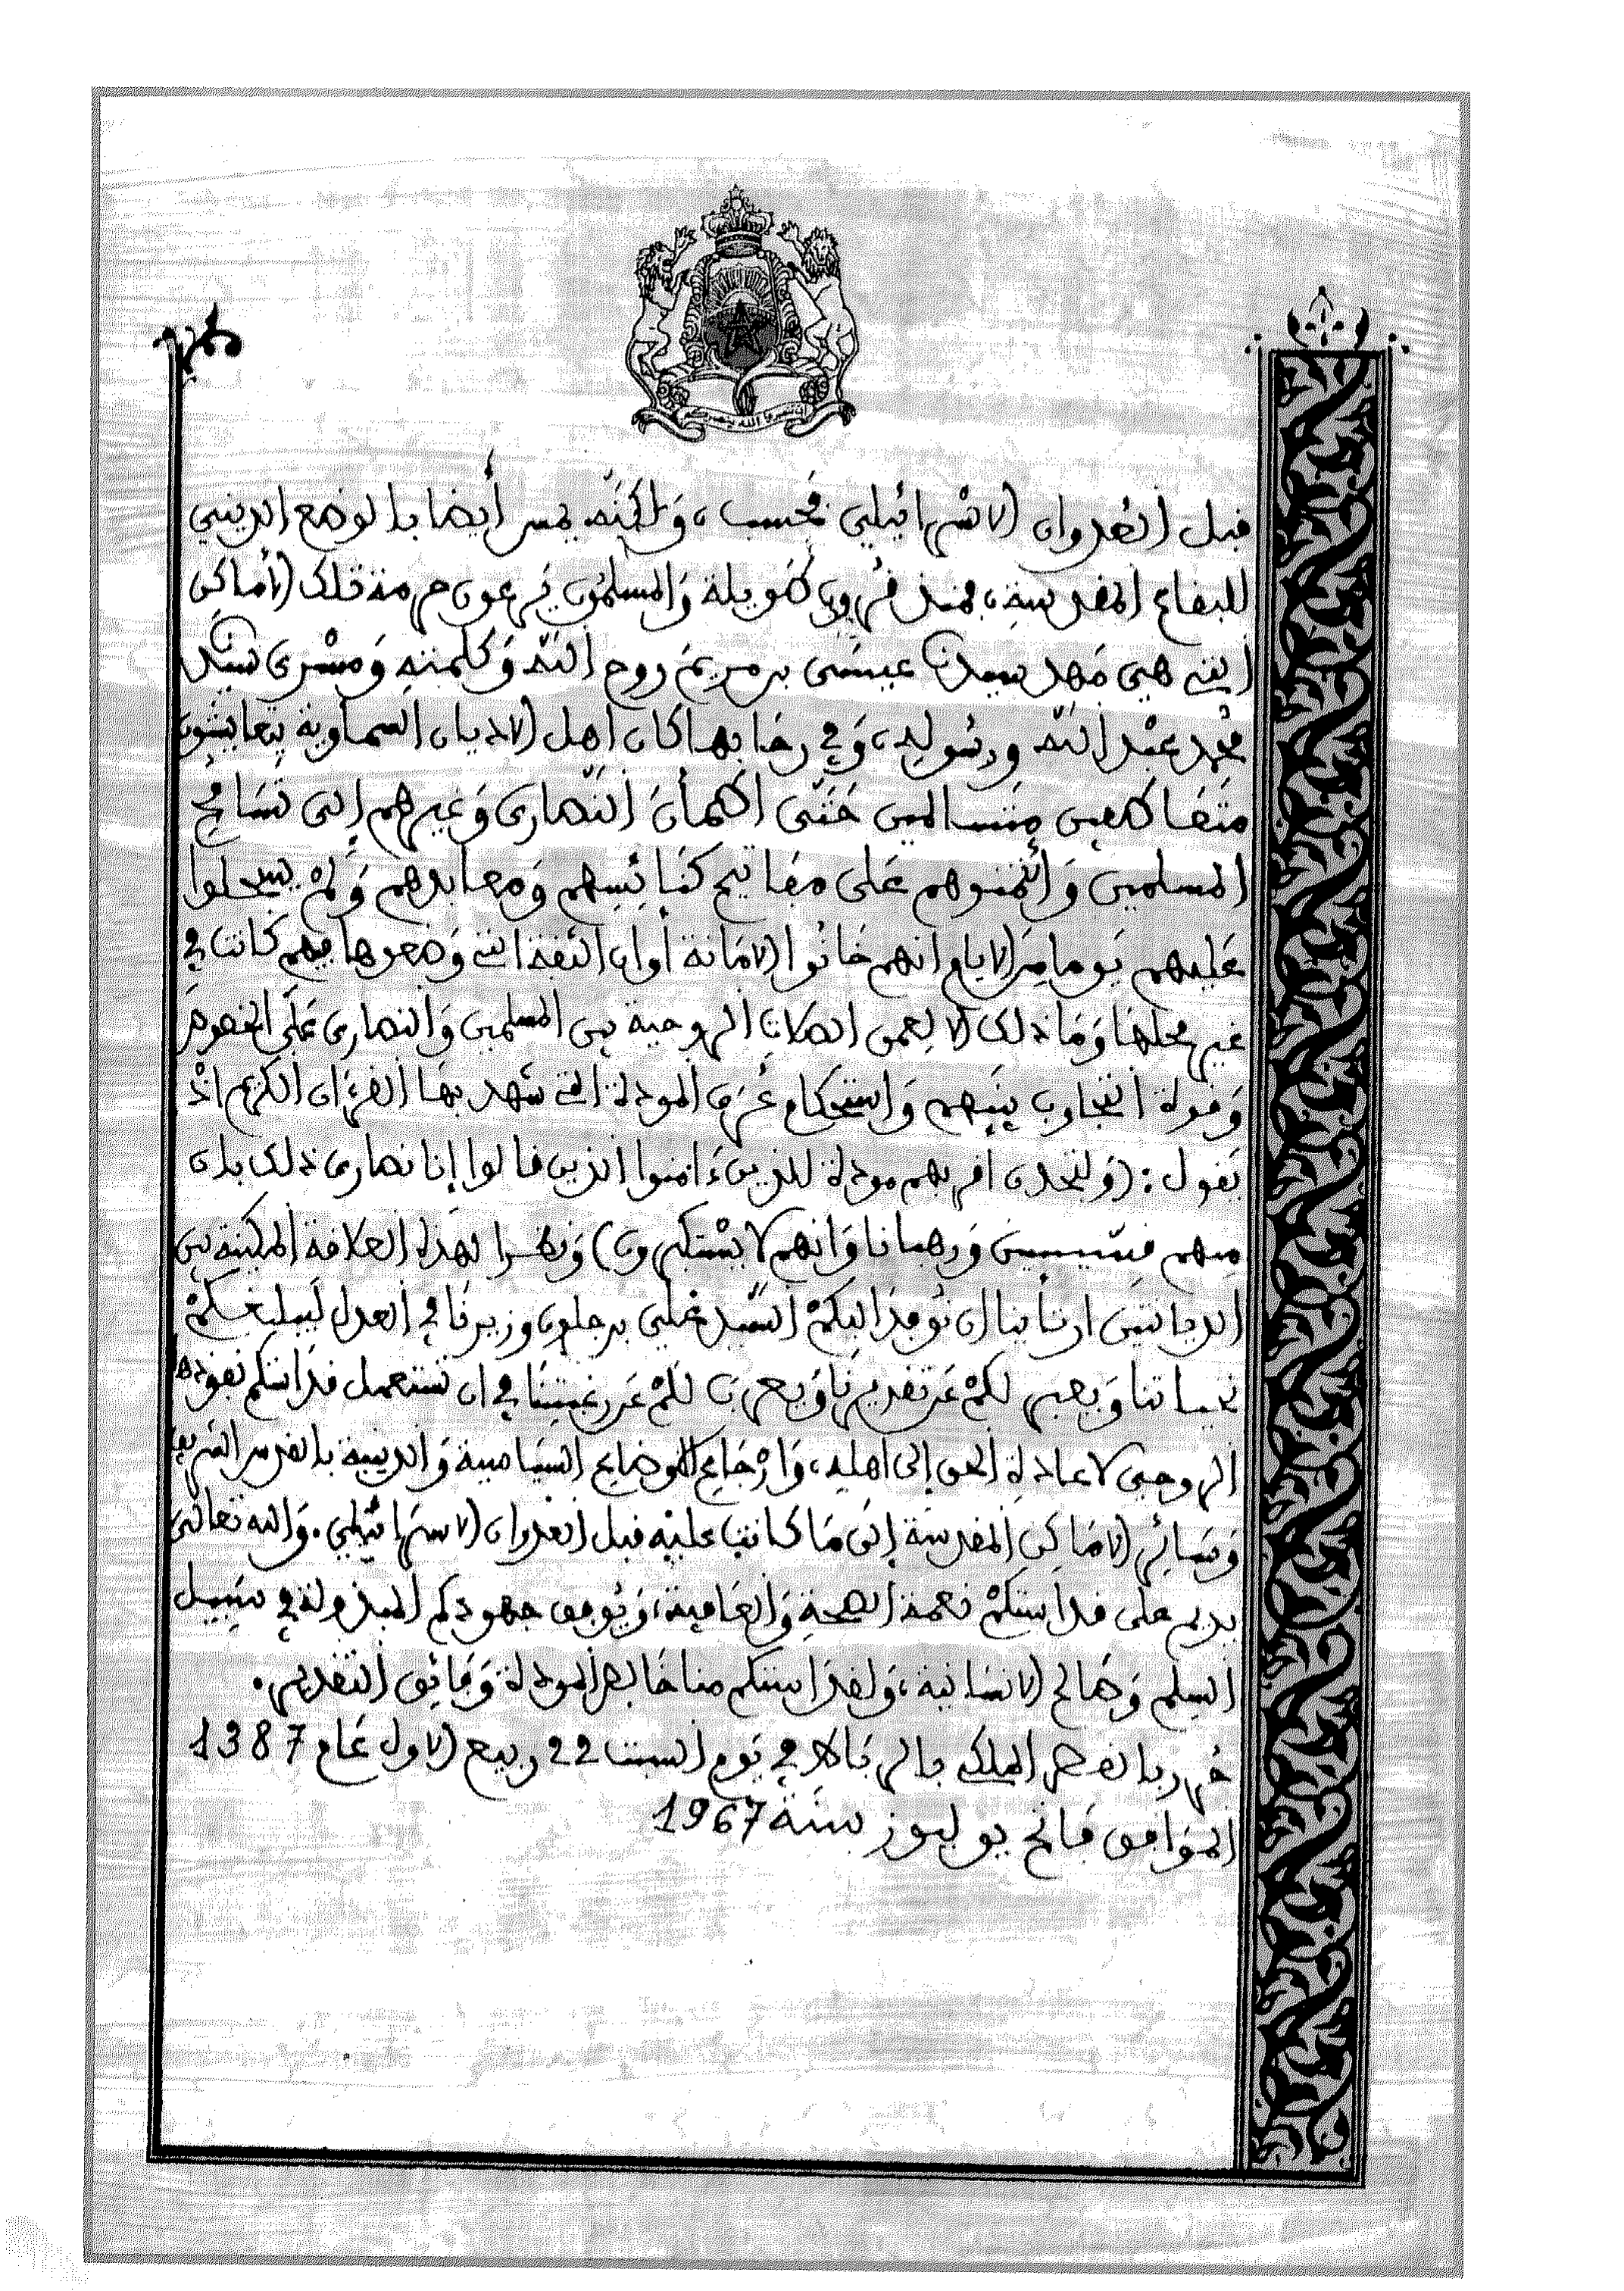 قبل العدوان الاسرائيلي فحسب، وَلكِنَّه يمس أيضا بالوضع الديني
للبقاع المقدسة، فمنذ قُرون طَويلة وَالمسلمُون يَرعون حرمة تلك الأماكن
التي هي مَهد سيدنا عيسَى بن مريمَ روح اللّه وَكلمته وَمسْرى سيّدنا
محمد عبْد اللّه ورسُوله، وَفي رحَابها كان اهل الاديان السماوية يتعايشون
متفَاهمين متسالمين حَتّى اطمأنَ النّصارى وَغيرهم إلى تسَامح
المسلمين وَائتمنوهم عَلى مفاتيح كنائسهم وَمعابدهم وَلم يسجلوا
عَليهم يَوما من الايام انهم خَانُوا الامَانة أو ان الثقة التي وَضعوها فيهم كانت في
غير محلهَا وَمَا ذلك الا لِعمق الصلات الروحية بين المسلمين وَالنصارى عَلى الخصوص
وَقوة التجاوب بَينهم وَاستحكام عُرى المودة التي شهد بهَا القرءان الكريم اذْ
يَقول: (وَلتجدن اقربهم مودة للذين ءَامنوا الذين قالوا إنا نصارى ذلك بأن
منهم قسّيسين وَرهبانا وَانهم لا يسْتكبرون) وَنظرا لهذه العلاقة المكينة بين
الديانتين ارتأينا ان نُوفدَ اليكمْ السّيد عَلي بن جلون وزيرنَا في العدل لَيبلغكمْ
تحياتنا وَيعبر لكمْ عَن تقديرنَا وَيعرب لكمْ عَن رغبتنَا في ان تستعمل قدَاستكم نفوذها
الروحي لاعادة الحق إلى اهله، وَارْجَاع الاوضاع السّياسية وَالدينية بالقدس الشريف
وَسَائر الامَاكن المقدسَة إلى مَا كانت عليْه قبل العدوان الاسرائيلي. وَالله تعالى
يديم على قداستكمْ نعمة الصحة وَالعَافية، وَيُوفق جهودكم المبذولة في سَبيل
السلم وَصَالح الانسَانية، وَلقدَاستكم منا خَالص المودة وَفَائق التقدير.
حُرر بالقصر الملكي بالربَاط في يَوم السبت 22 ربيع الاول عَام 1387
الموَافق فَاتح يوليوز سنَة 1967